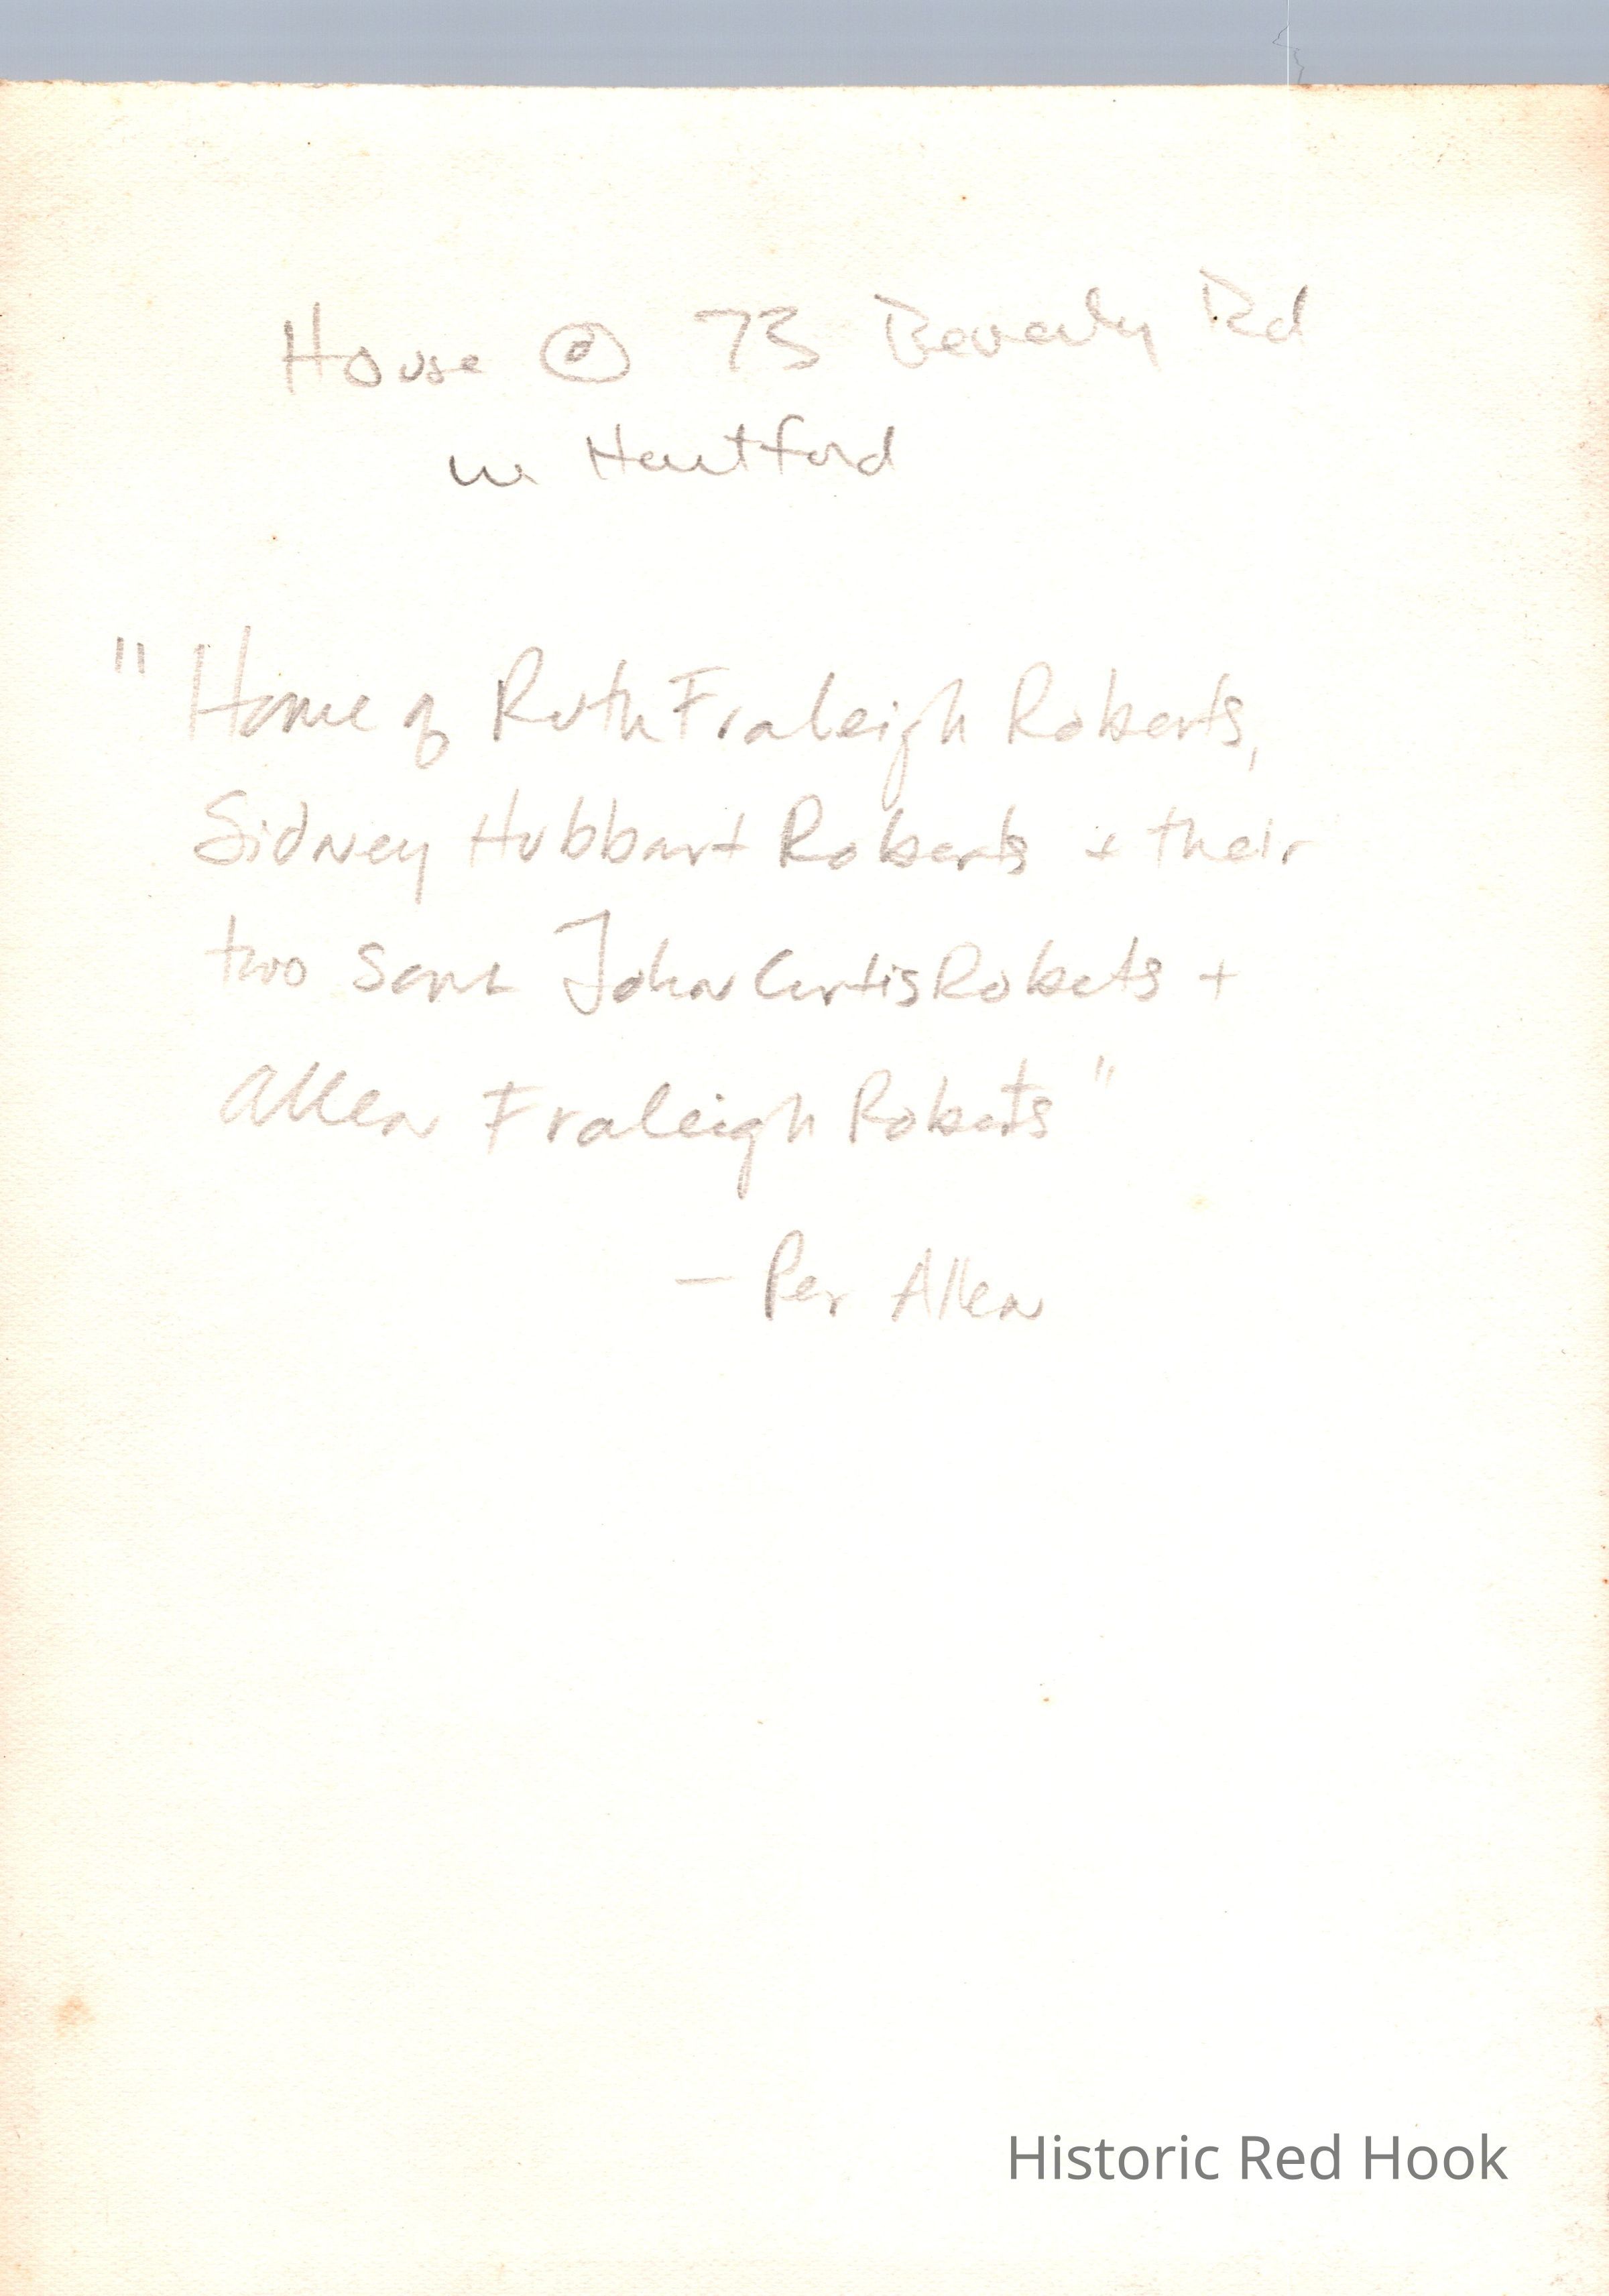 House @ 73 Beverly Rd
in Hartford
"Home of Ruth Fraleigh Roberts,
Sidney Hubbart Roberts + their
two sons John Curtis Roberts +
Allen Fraleigh Roberts"
- Per Allen
Historic Red Hook